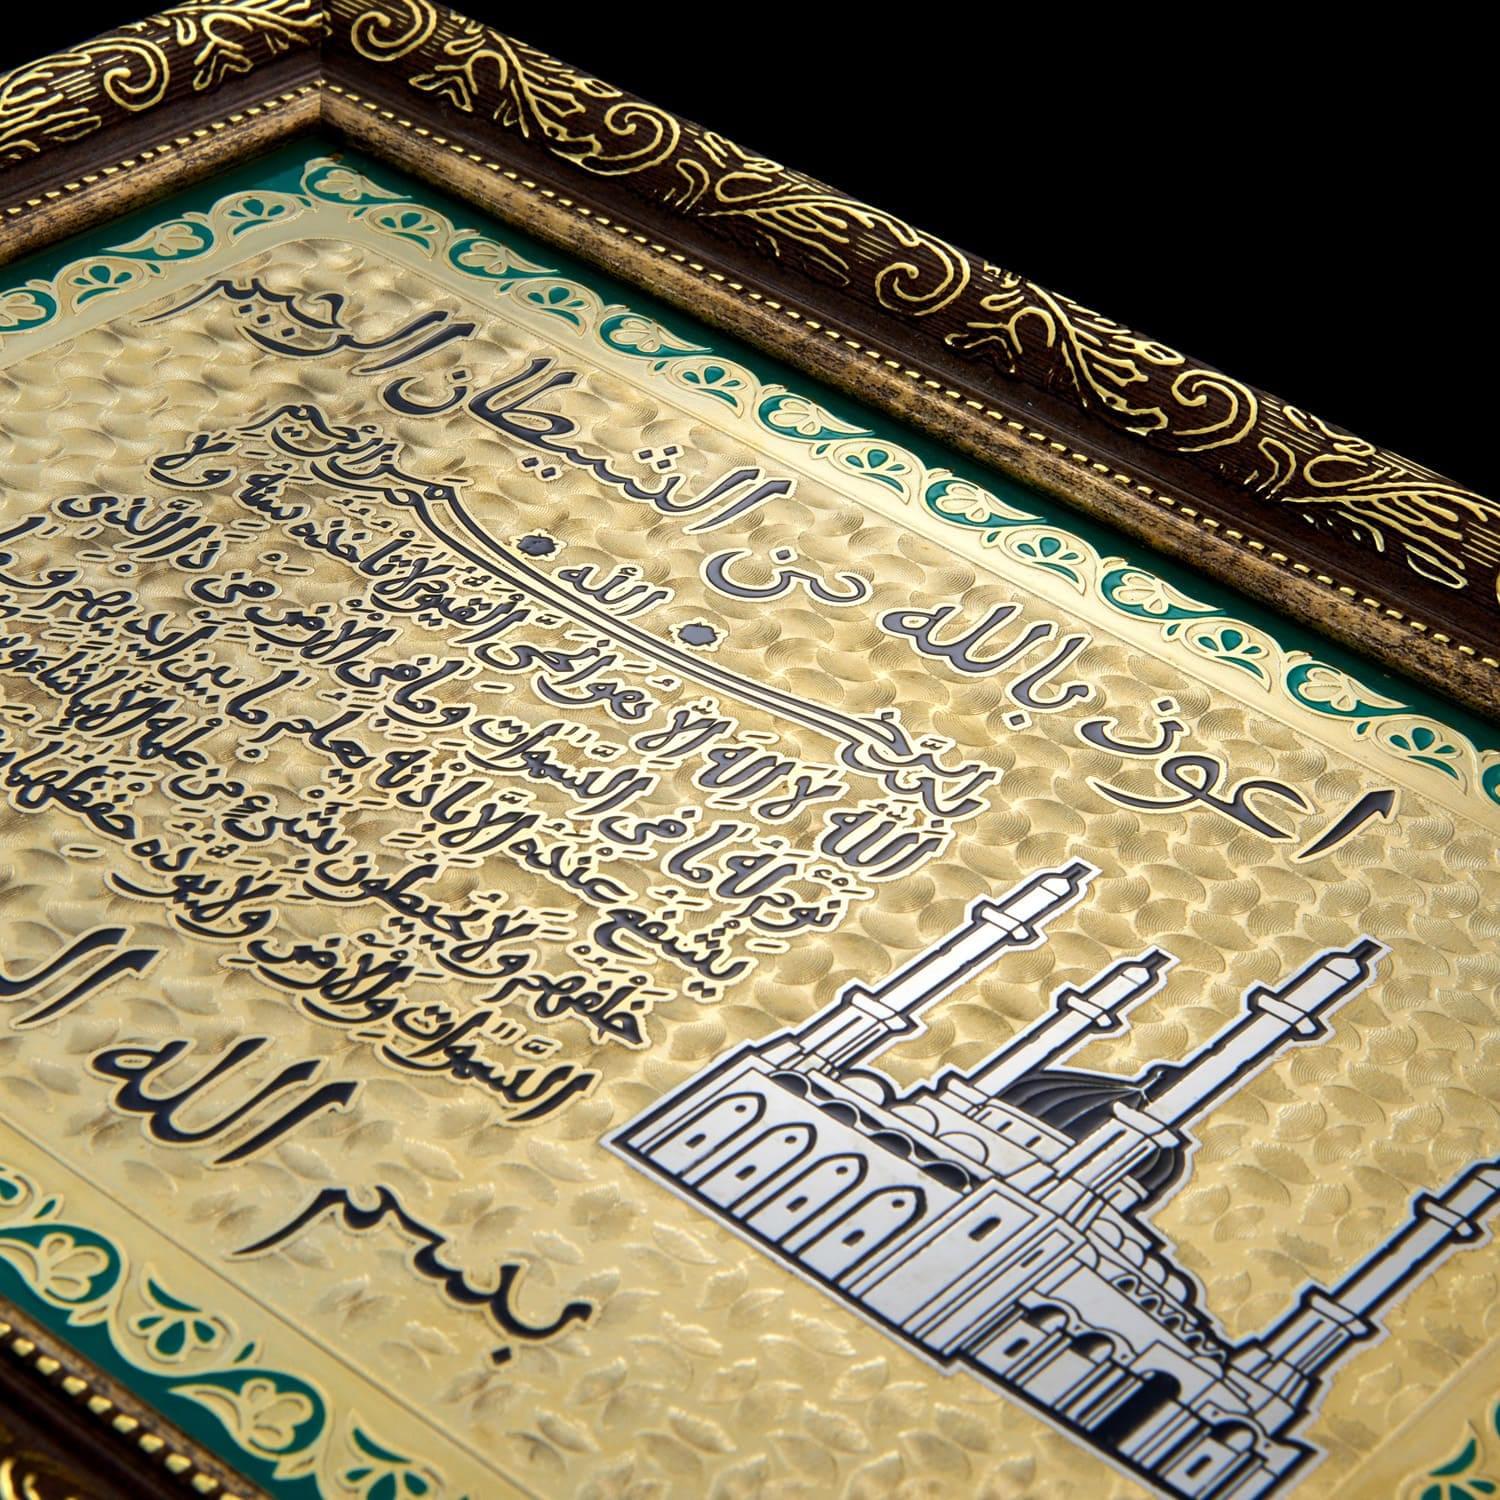 اعوذ بالله من الشيطان الرجيم
بسم الله الرحمن الرحيم
اللّٰهُ لَا اِلٰهَ اِلَّا هُوَ اَلْحَىُّ الْقَيُّومُ لَا تَأْخُذُهُ سِنَةٌ وَلَا
نَوْمٌ لَهُ مَا فِى السَّمٰوَاتِ وَمَا فِى الْاَرْضِ مَنْ ذَا الَّذِى
يَشْفَعُ عِنْدَهُ اِلَّا بِاِذْنِهِ يَعْلَمُ مَا بَيْنَ اَيْدِيهِمْ وَمَا
خَلْفَهُمْ وَلَا يُحِيطُونَ بِشَىْءٍ مِنْ عِلْمِهِ اِلَّا بِمَا شَاءَ
السَّمٰوَاتِ وَالْاَرْضَ وَلَا يَؤُدُهُ حِفْظُهُمَا
بسم الله